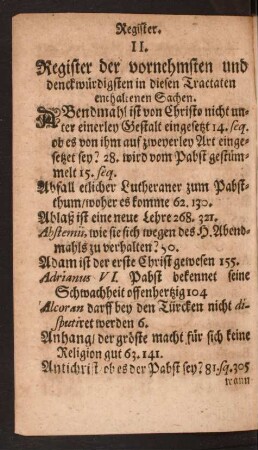 Register.
II.
Register der vornehmsten und
denckwürdigsten in diesen Tractaten
enthaltenen Sachen.
ABendmahl ist von Christo nicht un-
ter einerley Gestalt eingesetzt 14. seq.
ob es von ihm auf zweyerley Art einge-
setzet sey? 28. wird vom Pabst gestüm-
melt 15. seq.
Abfall etlicher Lutheraner zum Pabst-
thum/ woher es komme 62. 130.
Ablaß ist eine neue Lehre 268. 321.
Abstemii, wie sie sich wegen des H. Abend-
mahls zu verhalten? 50.
Adam ist der erste Christ gewesen 155.
Adrianus VI. Pabst bekennet seine
Schwachheit offenhertzig 104
Alcoran darff bey den Türcken nicht di-
sputiret werden 6.
Anhang/ der gröste macht für sich keine
Religion gut 63. 141.
Antichrist ob es der Pabst sey? 81. sq. 305
wann